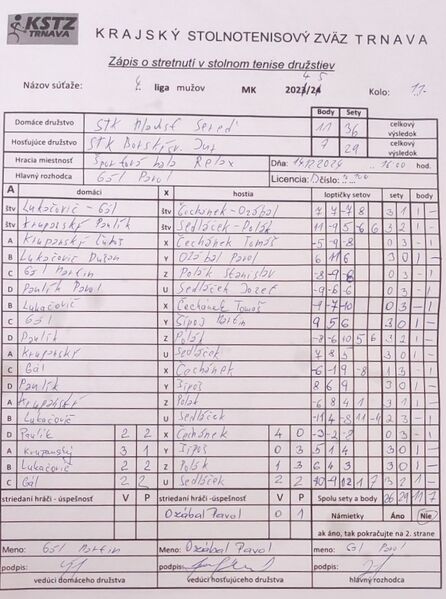 KSTZ
TRNAVA
KRAJSKÝ STOLNOTENISOVÝ ZVÄZ TRNAVA
Zápis o stretnutí v stolnom tenise družstiev
Názov súťaže: 4. liga mužov MK 2023/24 4 5 Kolo: 11.
Body Sety
Domáce družstvo STK 11 36 celkový výsledok
Hosťujúce družstvo STK 7 29 celkový výsledok
Hracia miestnosť Športová hala Relax Dňa: 14.12.2024 hod.
Hlavný rozhodca Gál Pavol Licencia: číslo:
A domáci X hostia loptičky setov sety body
štv Lukačovič - Gál štv Čechánek - Ožábal 7 7 -7 8 3 1 1 -
štv Krupanský Paulík štv Sedláček - Polák 11 -9 5 -6 6 3 2 1 -
A Krupanský X Čechánek Tomáš -5 -9 -8 0 3 - 1
B Lukačovič Dušan Y Ožábal Pavol 6 11 6 3 0 1 -
C Gál Martin Z Polák Stanislav -8 -9 -6 0 3 - 1
D Paulík Pavol U Sedláček Jozef
B Lukačovič X Čechánek Tomáš -9 -7 -10 0 3 - 1
C Gál Y Šípoš Martin 9 5 6 3 0 1 -
D Paulík Z Polák -8 -6 10 5 6 3 2 1 -
A Krupanský U Sedláček 7 8 5 3 0 1 -
C Gál X Čechánek -6 -19 -8 1 3 - 1
D Paulík Y Šípoš 8 6 9 3 0 1 -
A Krupanský Z Polák -6 8 4 1 3 1 1 -
B Lukačovič U Sedláček -11 4 -8 11 -4 2 3 - 1
D Paulík 2 2 X Čechánek 4 0 -3 -2 -2 0 3 - 1
A Krupanský 3 1 Y Šípoš 0 3 5 1 4 3 0 1 -
B Lukačovič 2 2 Z Polák 1 3 6 4 3 3 0 1 -
C Gál 2 2 U Sedláček 2 2 -10 -9 12 1 7 3 2 1 -
striedaní hráči - úspešnosť V P striedaní hráči - úspešnosť V P Spolu sety a body 36 29 11 7
Ožábal Pavol 0 1 Námietky Áno Nie
ak áno, tak pokračujte na 2. strane
Meno: Gál Martin Meno: Ožábal Pavol meno: Gál Pavol
podpis: podpis: podpis:
vedúci domáceho družstva vedúci hosťujúceho družstva hlavný rozhodca